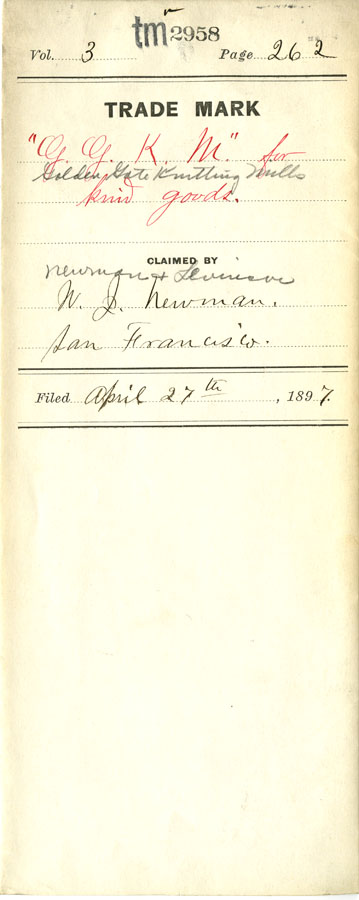 tm 2958
Vol. 3 Page 262
TRADE MARK
"G. G. K. M." for
Golden Gate Knitting Mills
knid goods.
CLAIMED BY
Newman & Levinson
W. J. Newman.
San Francisco.
Filed April 27th, 1897.